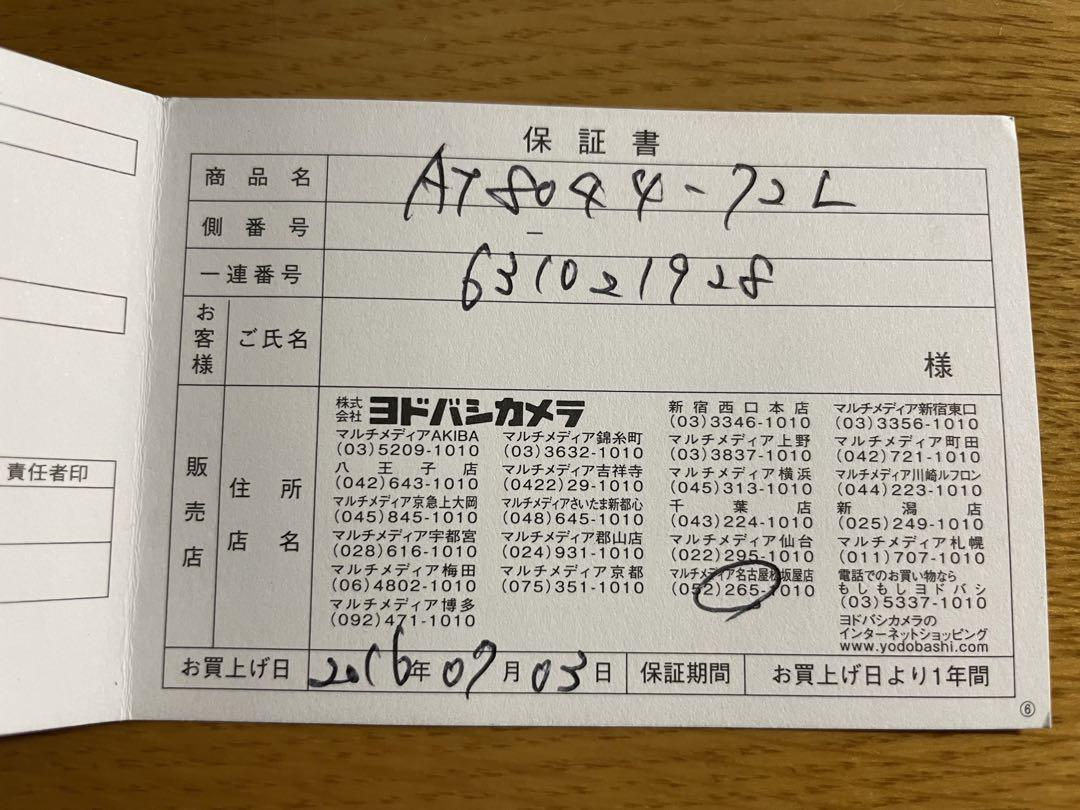 保証書
商品名 AT8044-72L
側番号 −
一連番号 631021928
お客様 ご氏名 様
販売店 住所 店名
株式会社 ヨドバシカメラ
マルチメディアAKIBA
(03)5209-1010
八王子店
(042)643-1010
マルチメディア京急上大岡
(045)845-1010
マルチメディア宇都宮
(028)616-1010
マルチメディア梅田
(06)4802-1010
マルチメディア博多
(092)471-1010
マルチメディア錦糸町
(03)3632-1010
マルチメディア吉祥寺
(0422)29-1010
マルチメディアさいたま新都心
(048)645-1010
マルチメディア郡山店
(024)931-1010
マルチメディア京都
(075)351-1010
新宿西口本店
(03)3346-1010
マルチメディア上野
(03)3837-1010
マルチメディア横浜
(045)313-1010
千葉店
(043)224-1010
マルチメディア仙台
(022)295-1010
マルチメディア名古屋松坂屋店
(052)265-1010
マルチメディア新宿東口
(03)3356-1010
マルチメディア町田
(042)721-1010
マルチメディア川崎ルフロン
(044)223-1010
新潟店
(025)249-1010
マルチメディア札幌
(011)707-1010
電話でのお買い物なら
もしもしヨドバシ
(03)5337-1010
ヨドバシカメラの
インターネットショッピング
www.yodobashi.com
お買上げ日 2016年07月03日 保証期間 お買上げ日より1年間
⑥
責任者印